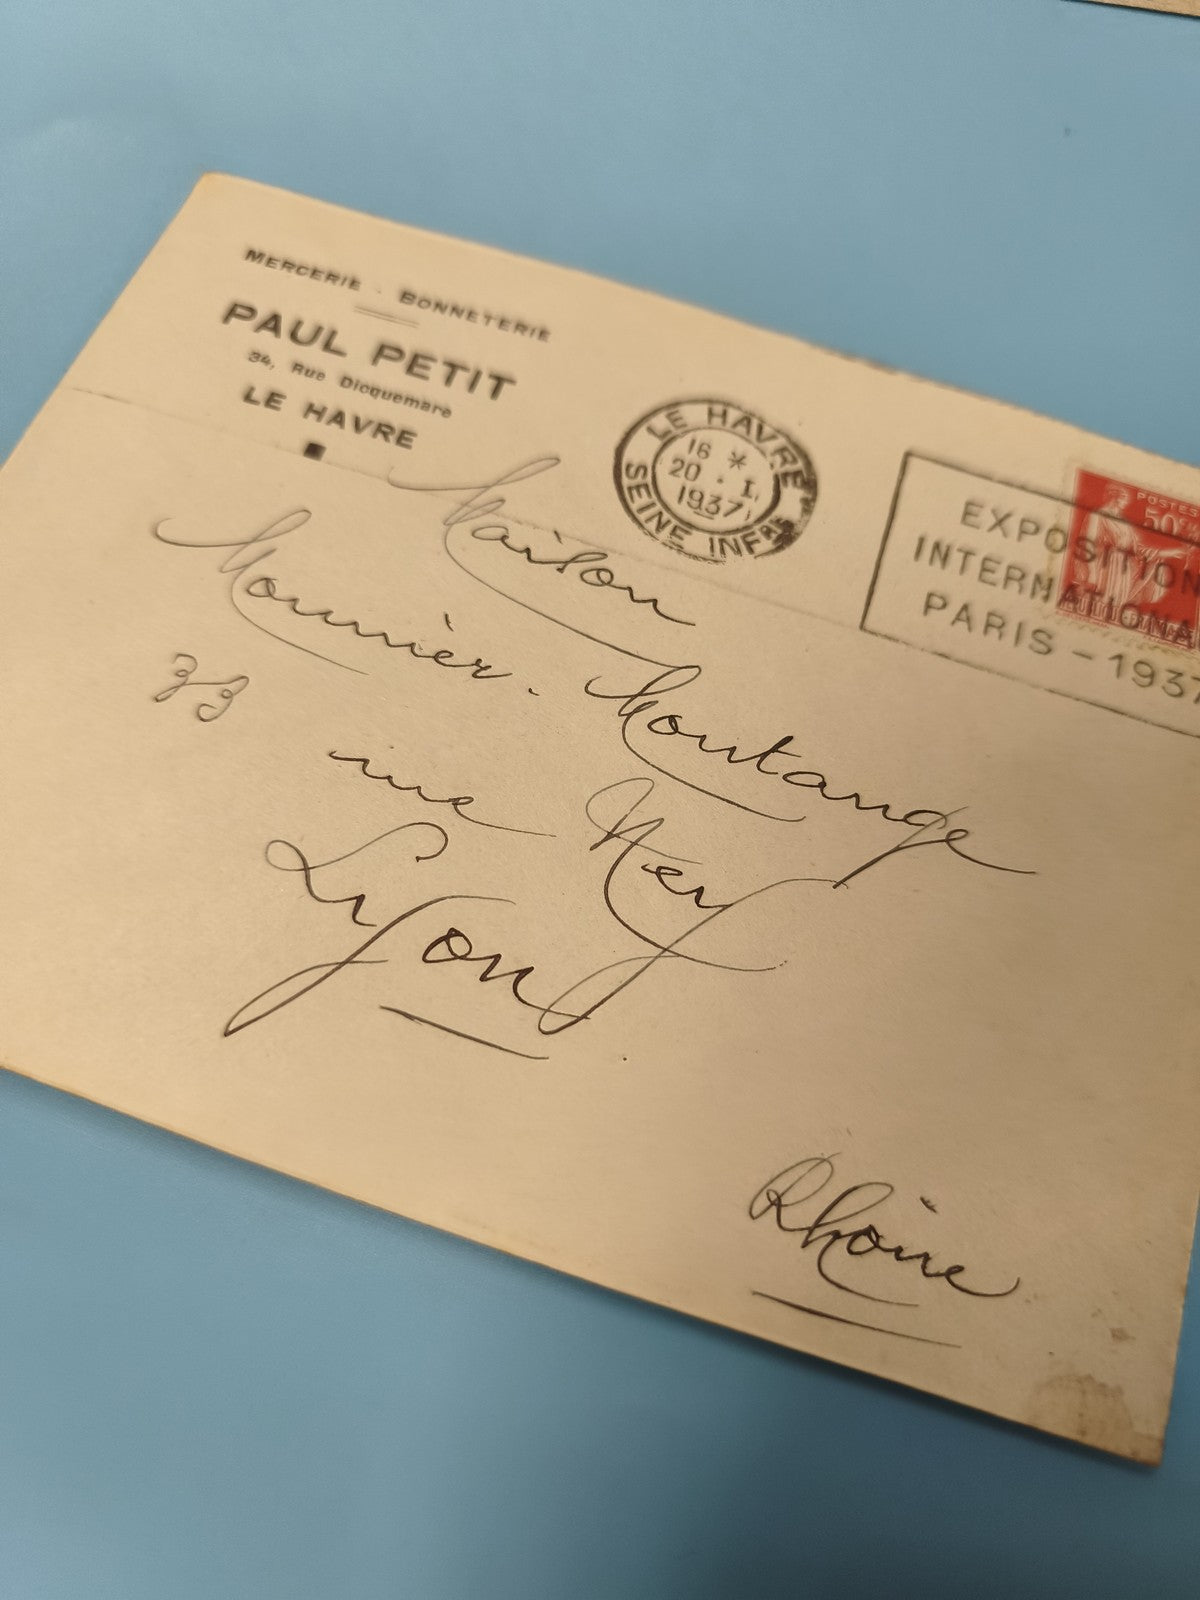 MERCERIE - BONNETERIE
PAUL PETIT
34, Rue Dicquemare
LE HAVRE
LE HAVRE
16 *
20 . I.
1937
SEINE INFRE
POSTES
50c
EXPOSITION
INTERNATIONA
PARIS - 1937
Maison
Monnier. Montange
33 rue Ney
Lyon
Rhône